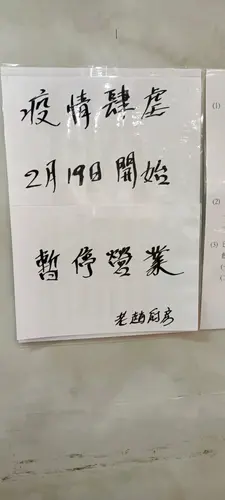 疫情肆虐
2月19日開始
暫停營業
老趙厨房
(1)
(2)
(3)